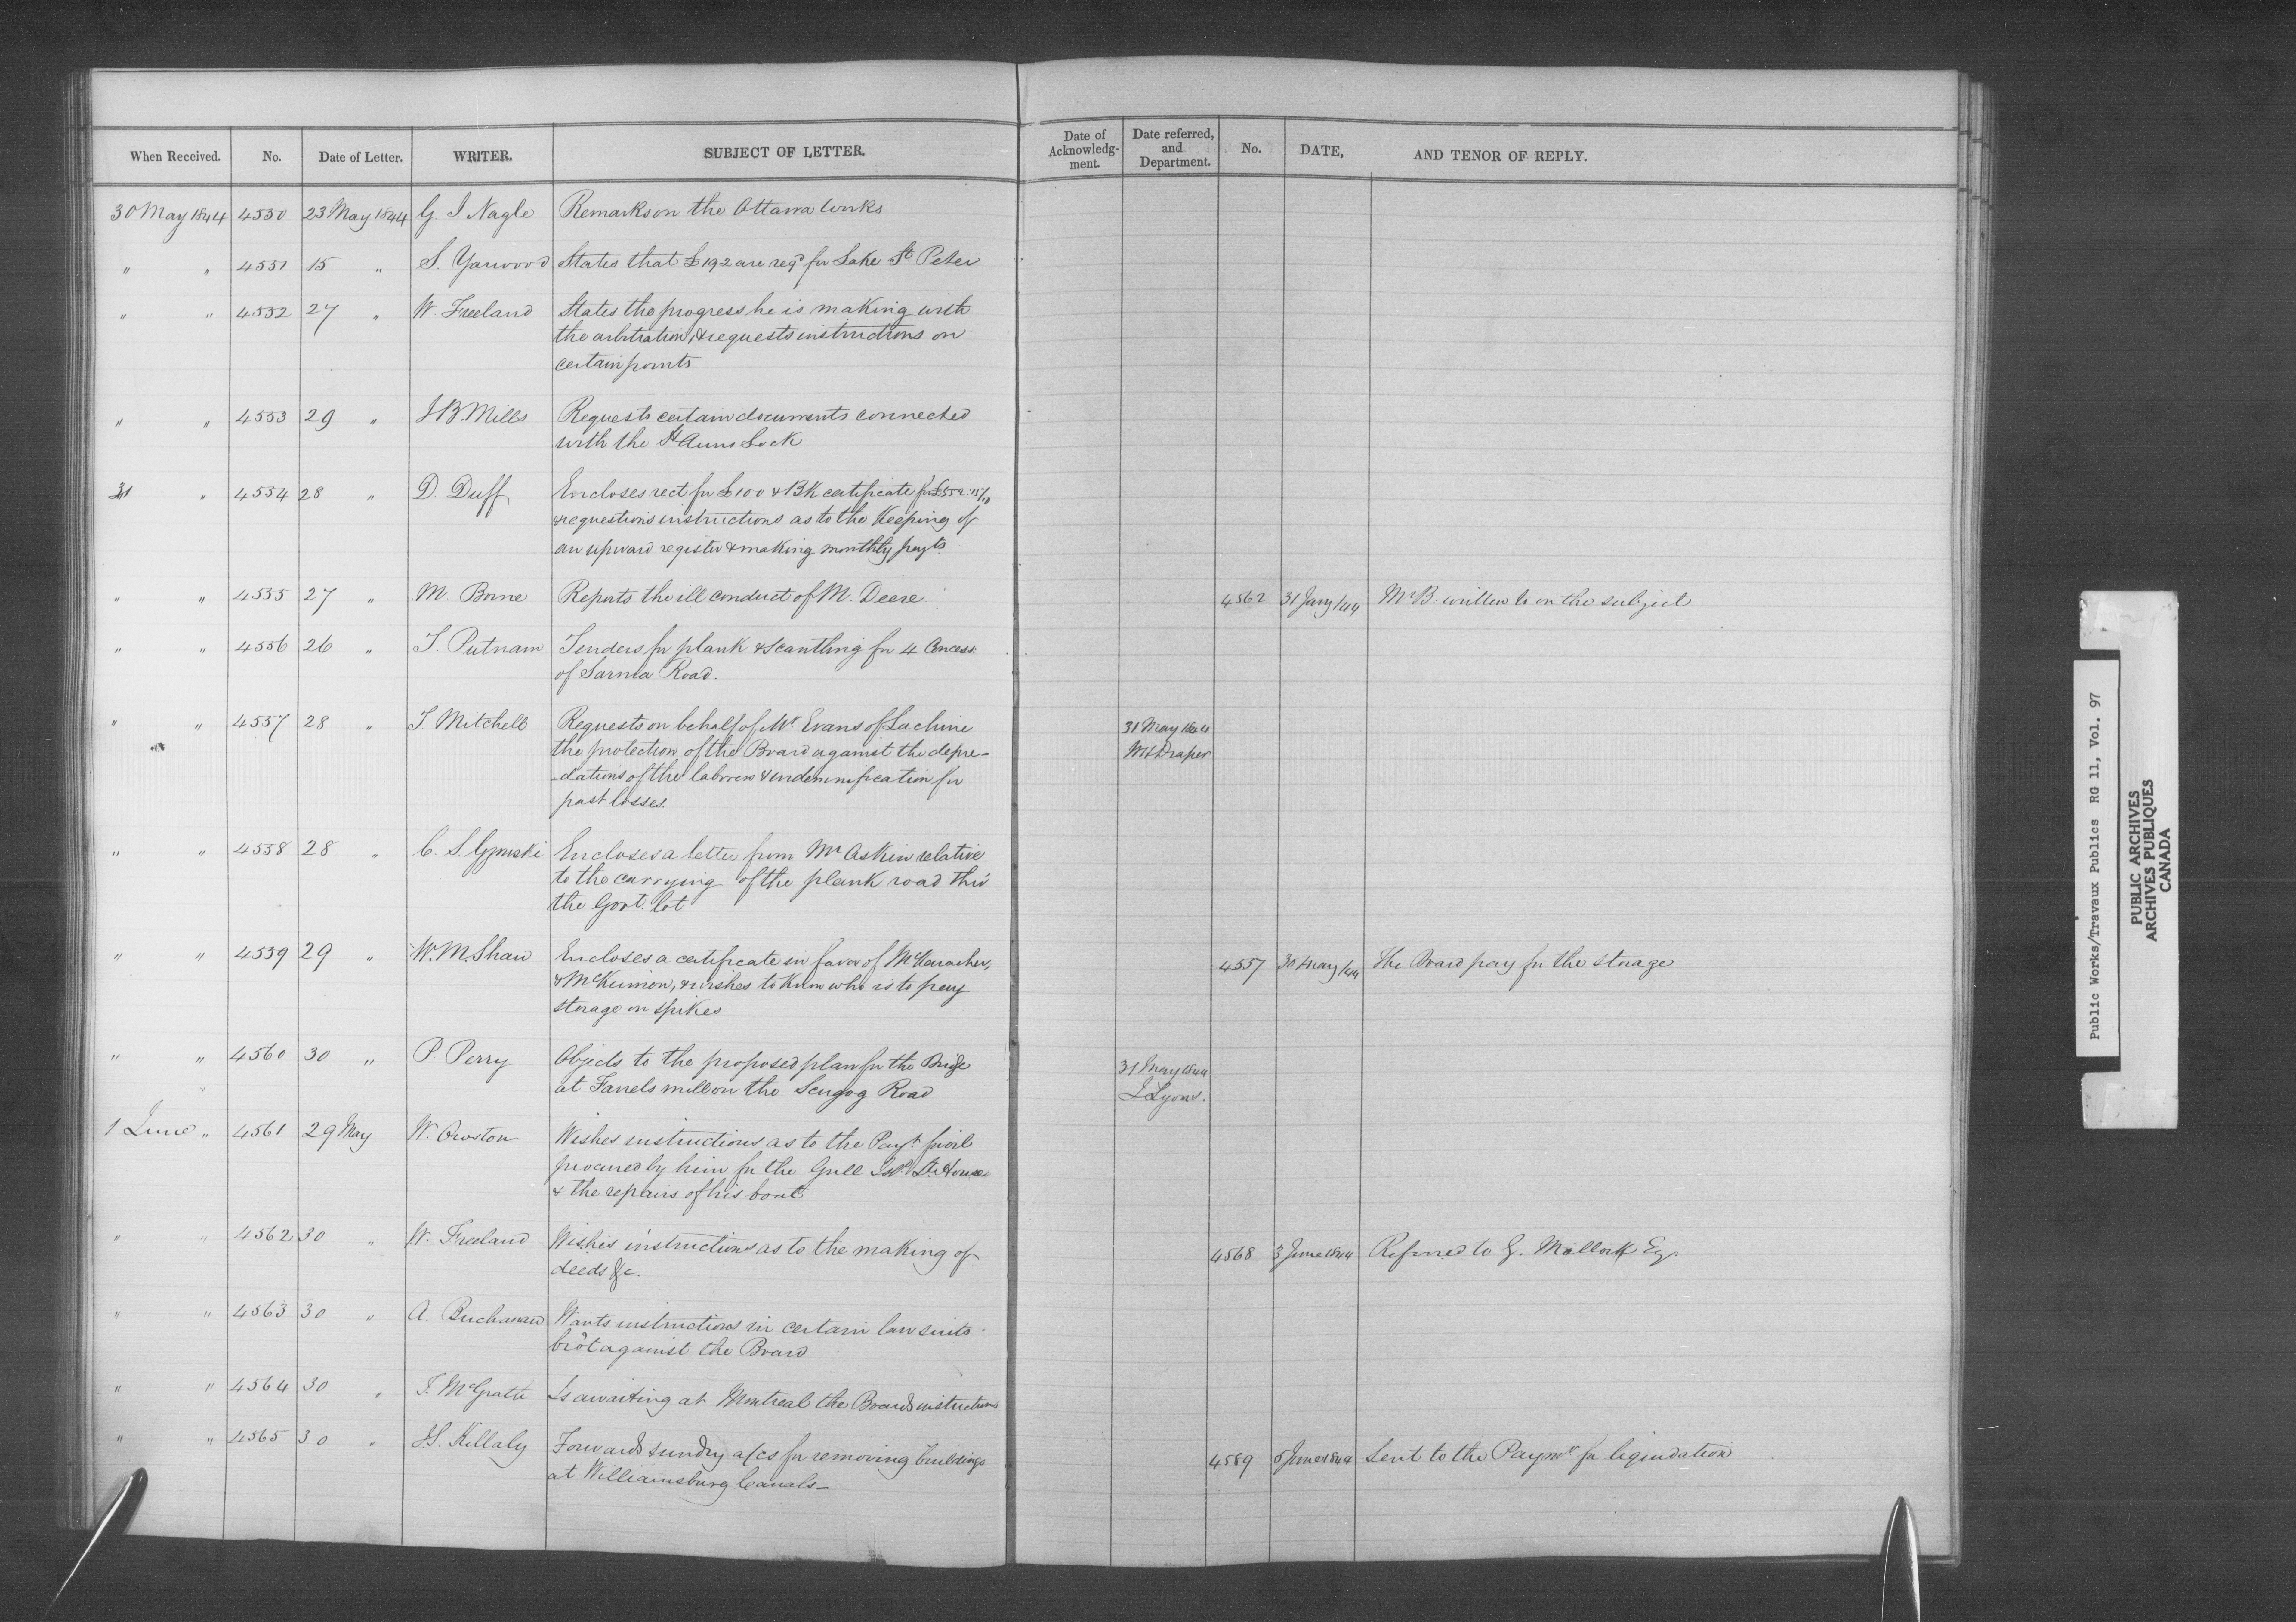 When Received. No. Date of Letter. WRITER. SUBJECT OF LETTER.
Date of Acknowledg-ment. Date referred, and Department. No. DATE, AND TENOR OF REPLY.
30 May 1844 4550 23 May 1844 G. J. Nagle Remarks on the Ottawa Works
" " 4551 15 " S. Yarwood States that £192 are reqd for Lake St Peter
" " 4552 27 " W. Freeland States the progress he is making with
the arbitration, & requests instructions on
certain points
" " 4553 29 " J B Mills Requests certain documents connected
with the St Anns Lock
31 " 4554 28 " D. Duff Encloses rect for £100 & BK certificate for
& requestions instructions as to the Keeping of
an upward register & making monthly payts
" " 4555 27 " M. Borne Reports the ill conduct of M. Deere 4562 31 Jany /44 Mr B. written to on the subject
" " 4556 26 " T. Putnam Tenders for plank & Scantling for 4 Concess:
of Sarnia Road.
" " 4557 28 " T. Mitchell Requests on behalf of Mr Evans of Lachine 31 May 1844
the protection of the Board against the depre- Mr Draper
-dations of the laborers & indemnification for
past losses.
" " 4558 28 " C. S. Gzowski Encloses a letter from Mr Askin relative
to the carrying of the plank road thro'
the Govt. lot
" " 4559 29 " W. M. Shaw Encloses a certificate in favor of 4557 30 May /44 The Board pay for the storage
& McKinnon, & wishes to know who is to pay
storage on spikes
" " 4560 30 " P. Perry Objects to the proposed plan for the Bridge 31 May 1844
at Farrels mill on the Scugog Road J. Lyons.
1 June " 4561 29 May W. Owston Wishes instructions as to the Payt.
procured by him for the Gull Isld Lt. House
& the repairs of his boat
" " 4562 30 " W. Freeland Wishes instructions as to the making of 4568 3 June 1844 Referred to G. Malloch Esq.
deeds &c.
" " 4563 30 " A. Buchanan Wants instructions in certain law suits
bro't against the Board
" " 4564 30 " T. McGrath Is awaiting at Montreal the Boards instructions
" " 4565 30 " J. S. Killaly Forwards sundry a/cs for removing buildings 4589 5 June 1844 Sent to the Paymr for liquidation
at Williamsburg Canals-
Public Works/Travaux Publics RG 11, Vol. 97
PUBLIC ARCHIVES
ARCHIVES PUBLIQUES
CANADA